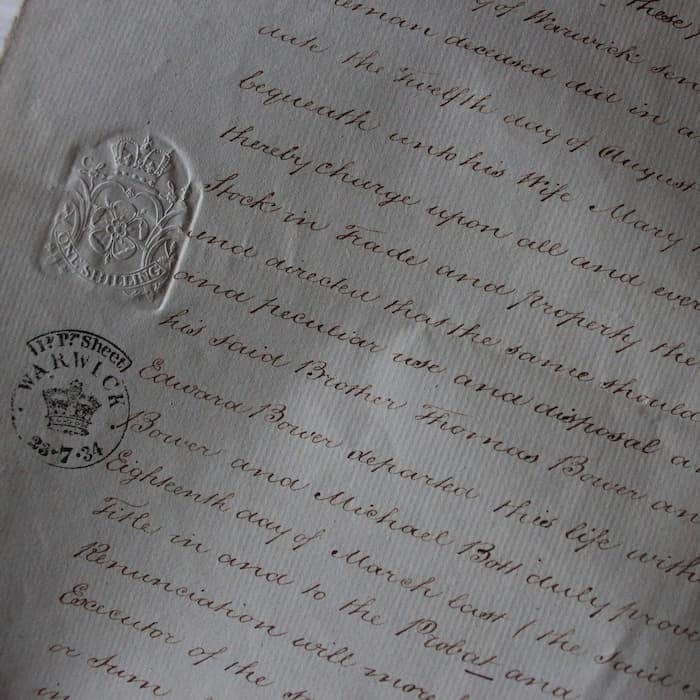 of Warwick
deceased did in
date the Twelfth day of August
bequeath unto his Wife Mary
thereby charge upon all and
Stock in Trade and property
and directed that the same should
and peculiar use and disposal
his said Brother Thomas Bower
Edward Bower departed this life
Bower and Michael Bott duly
Eighteenth day of March last (the said
Title in and to the Probat and
Renunciation will more
Executor of the
or sum
in
ONE SHILLING
1d Pr Sheet
WARWICK
23.7.34